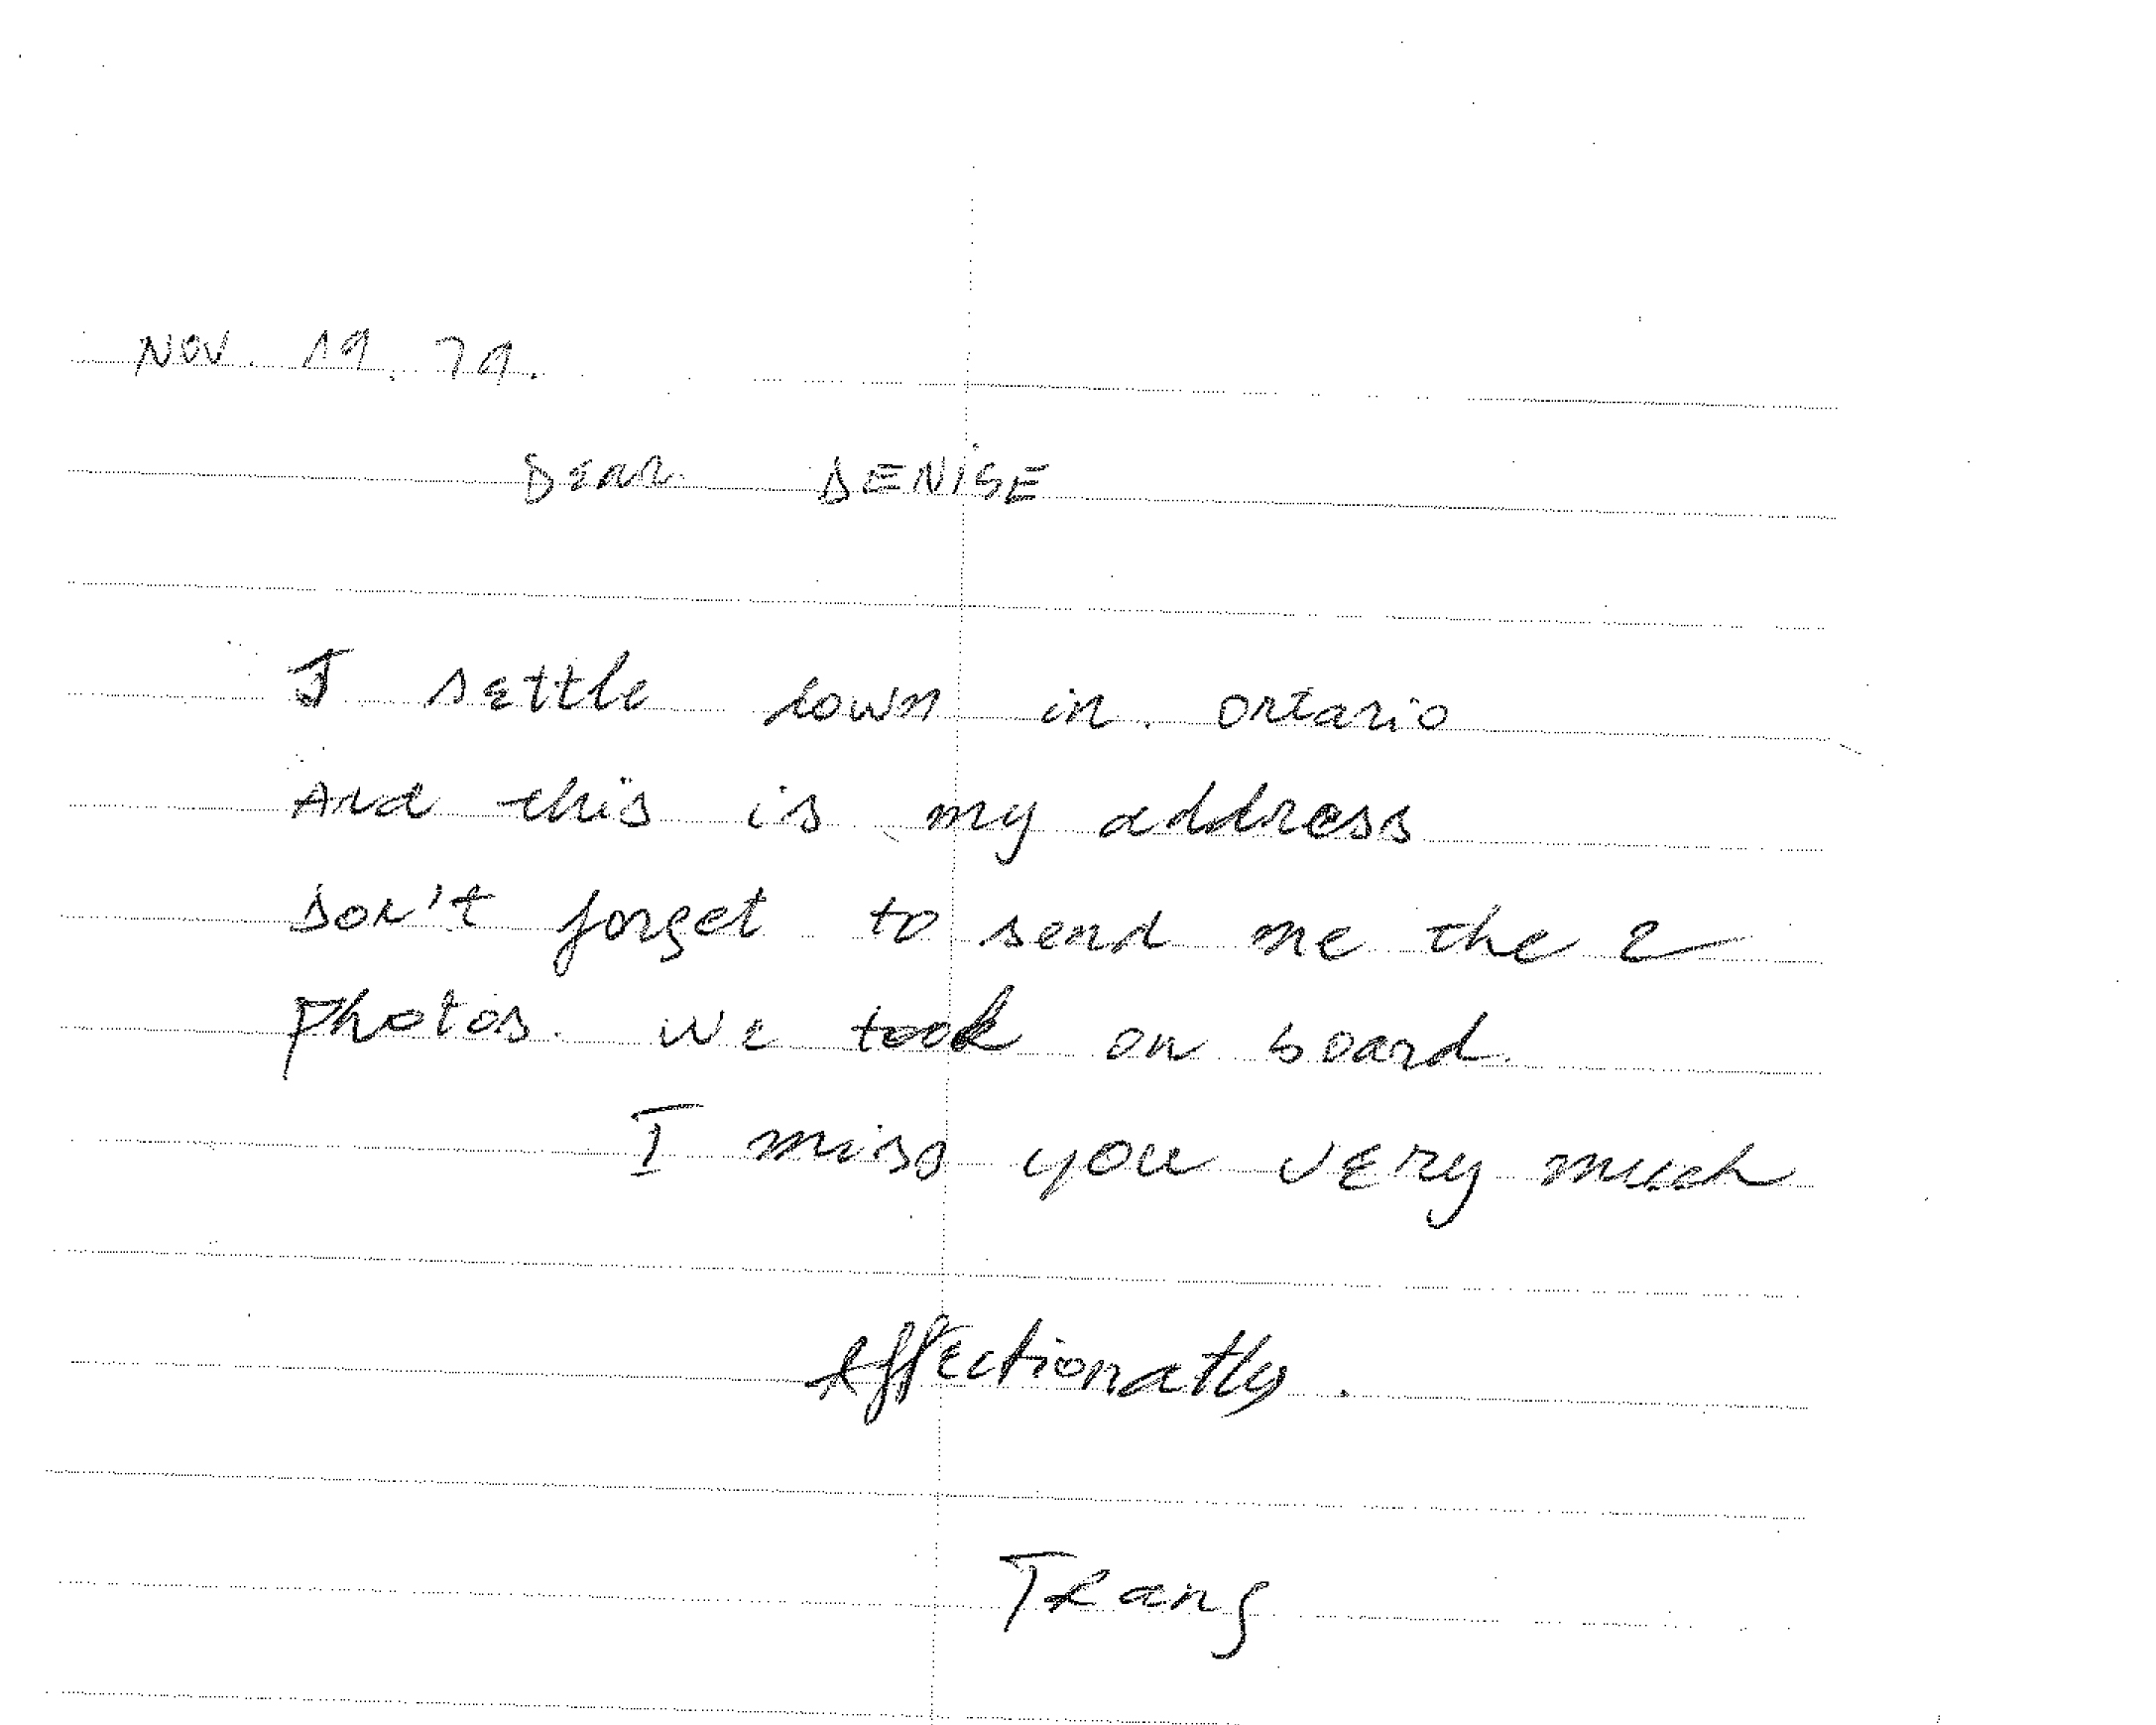 NOV. 19. 79.
Dear DENISE
I settle down in. ontario
And this is my address
Don't forget to send me the 2
photos. we took on board.
I miss you very much
effectionatly.
Trang